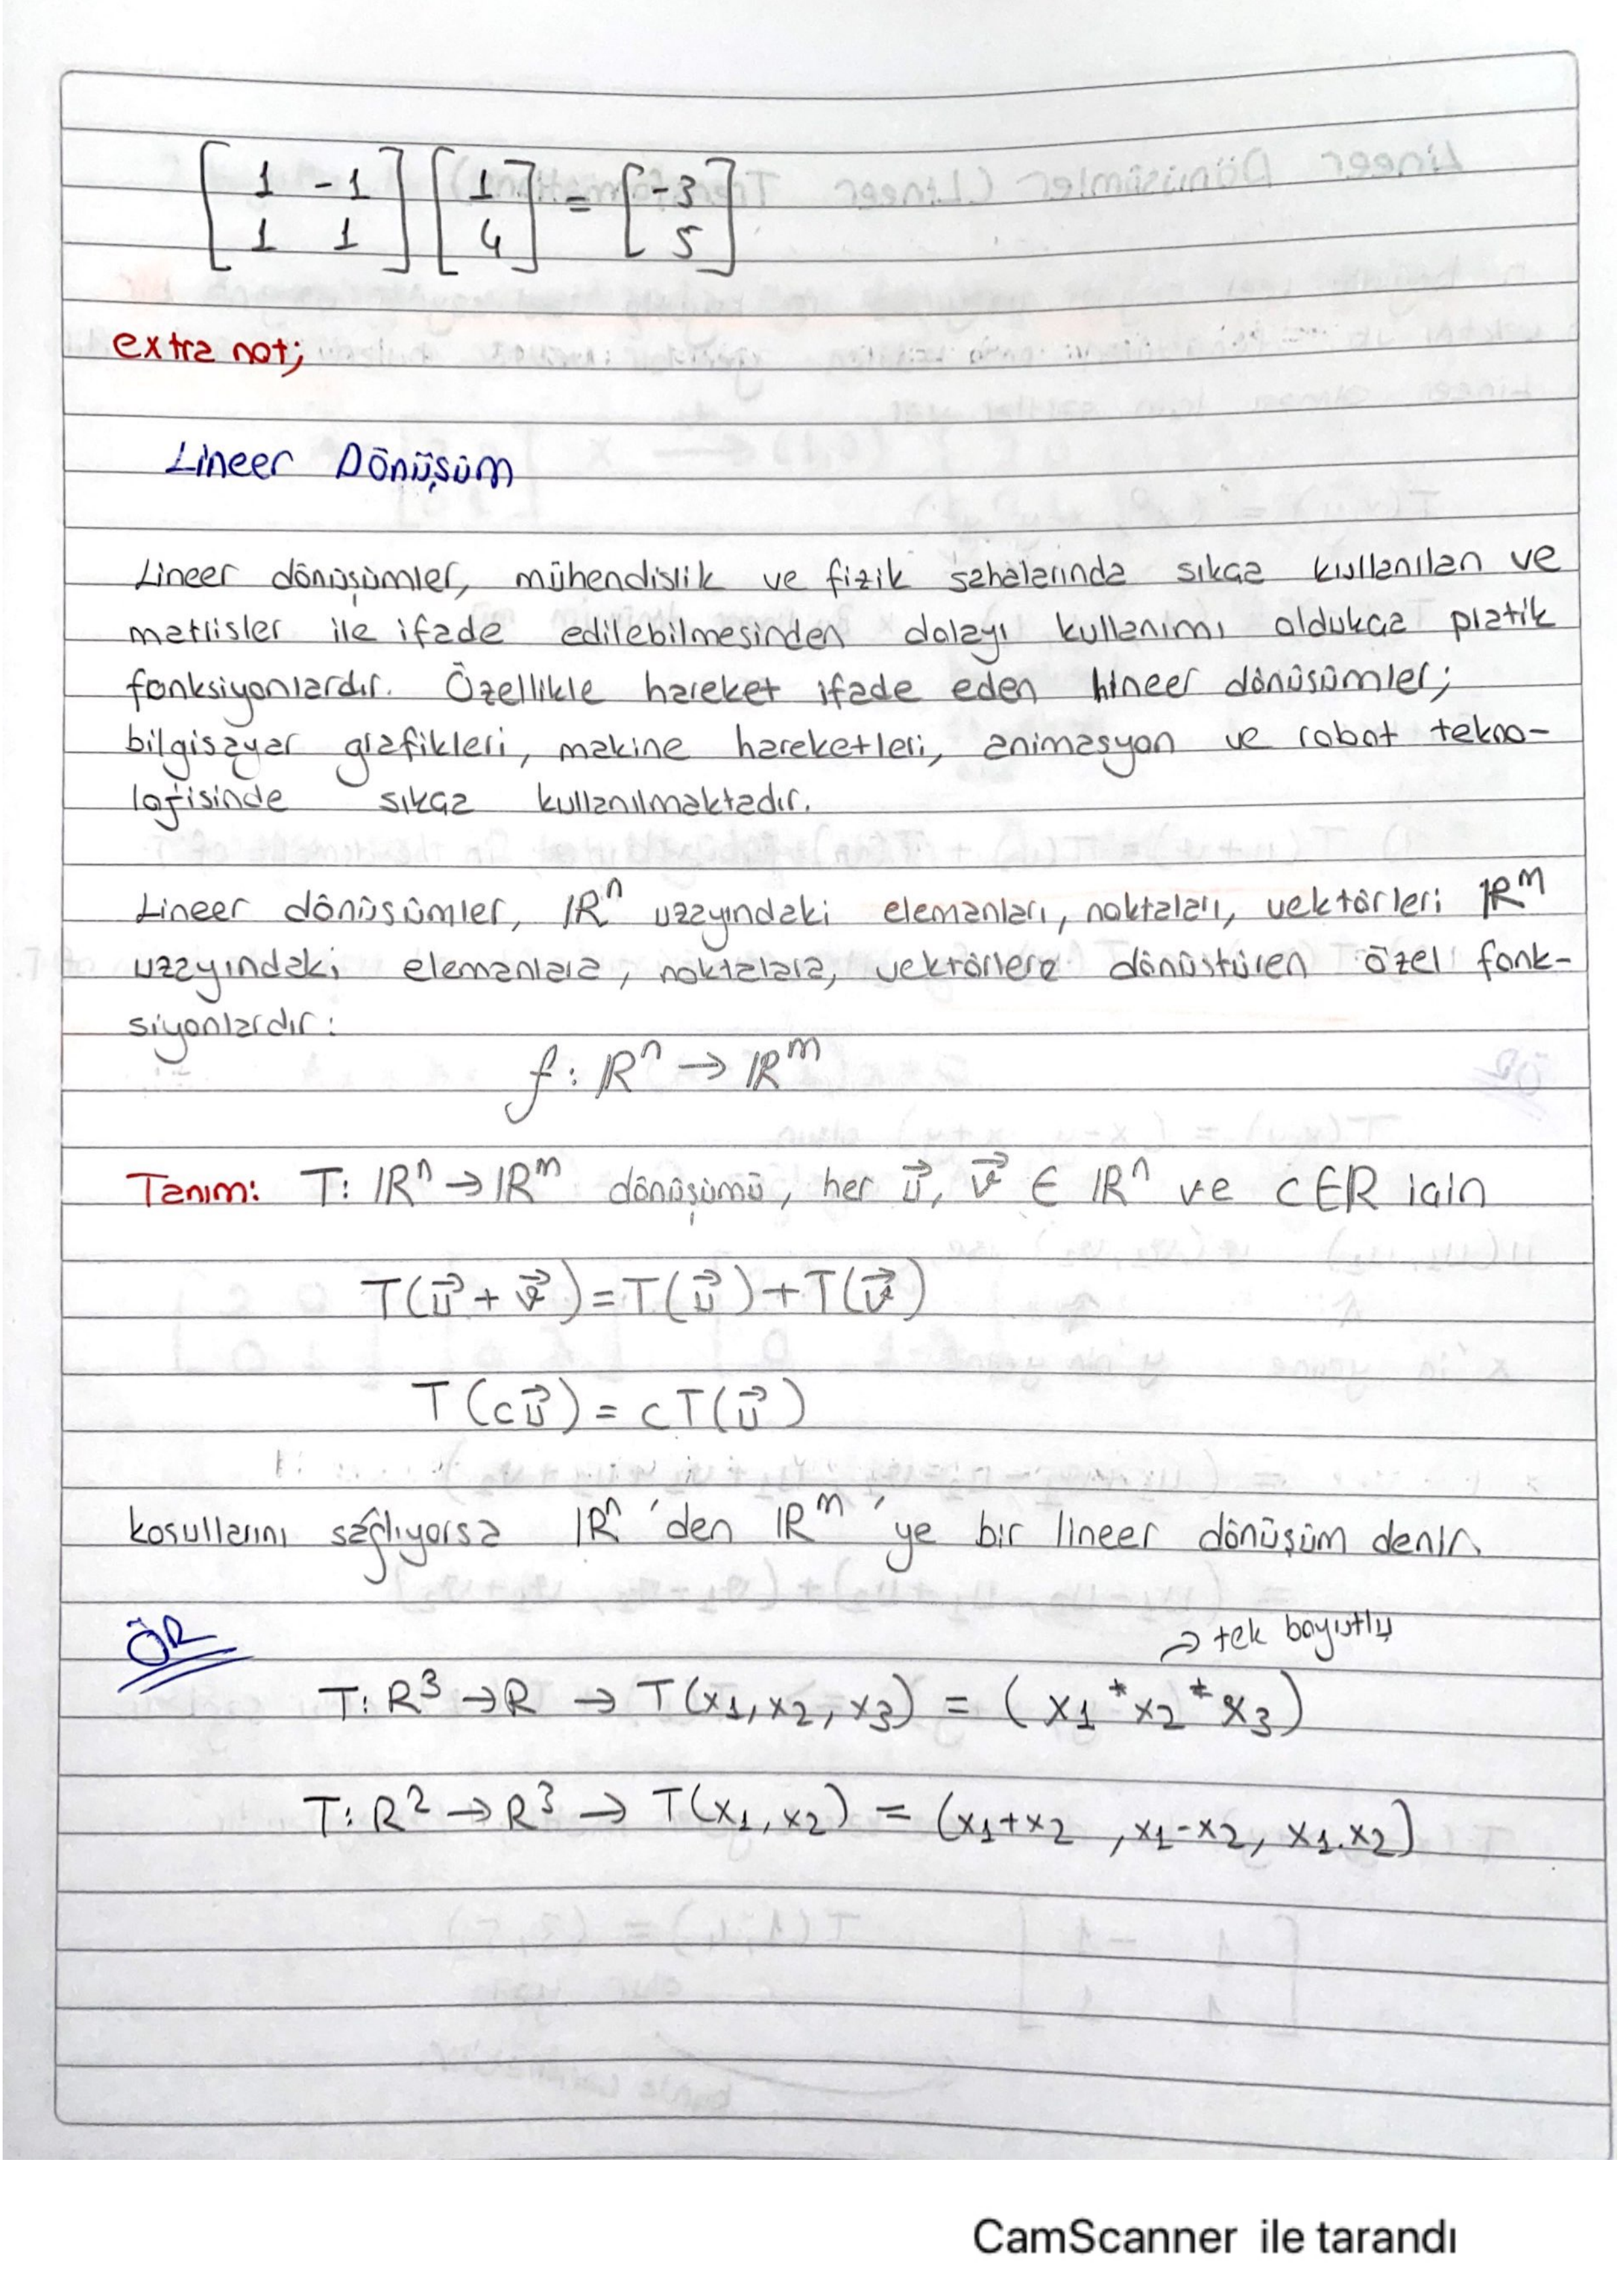 [1 -1
1 1] [1
4] = [-3
5]
extra not;
Lineer Dönüşüm
Lineer dönüşümler, mühendislik ve fizik sahalarında sıkça kullanılan ve
matrisler ile ifade edilebilmesinden dolayı kullanımı oldukça pratik
fonksiyonlardır. Özellikle hareket ifade eden lineer dönüşümler;
bilgisayar grafikleri, makine hareketleri, animasyon ve robot tekno-
lojisinde sıkça kullanılmaktadır.
Lineer dönüşümler, ℝⁿ uzayındaki elemanları, noktaları, vektörleri ℝᵐ
uzayındaki elemanlara, noktalara, vektörlere dönüştüren özel fonk-
siyonlardır:
f: ℝⁿ → ℝᵐ
Tanım: T: ℝⁿ → ℝᵐ dönüşümü, her u⃗, v⃗ ∈ ℝⁿ ve c∈R için
T(u⃗ + v⃗) = T(u⃗) + T(v⃗)
T(cu⃗) = cT(u⃗)
koşullarını sağlıyorsa ℝⁿ'den ℝᵐ'ye bir lineer dönüşüm denir.
ÖR
→ tek boyutlu
T: R³ → R → T(x₁, x₂, x₃) = (x₁ * x₂ * x₃)
T: R² → R³ → T(x₁, x₂) = (x₁+x₂, x₁-x₂, x₁.x₂)
CamScanner ile tarandı